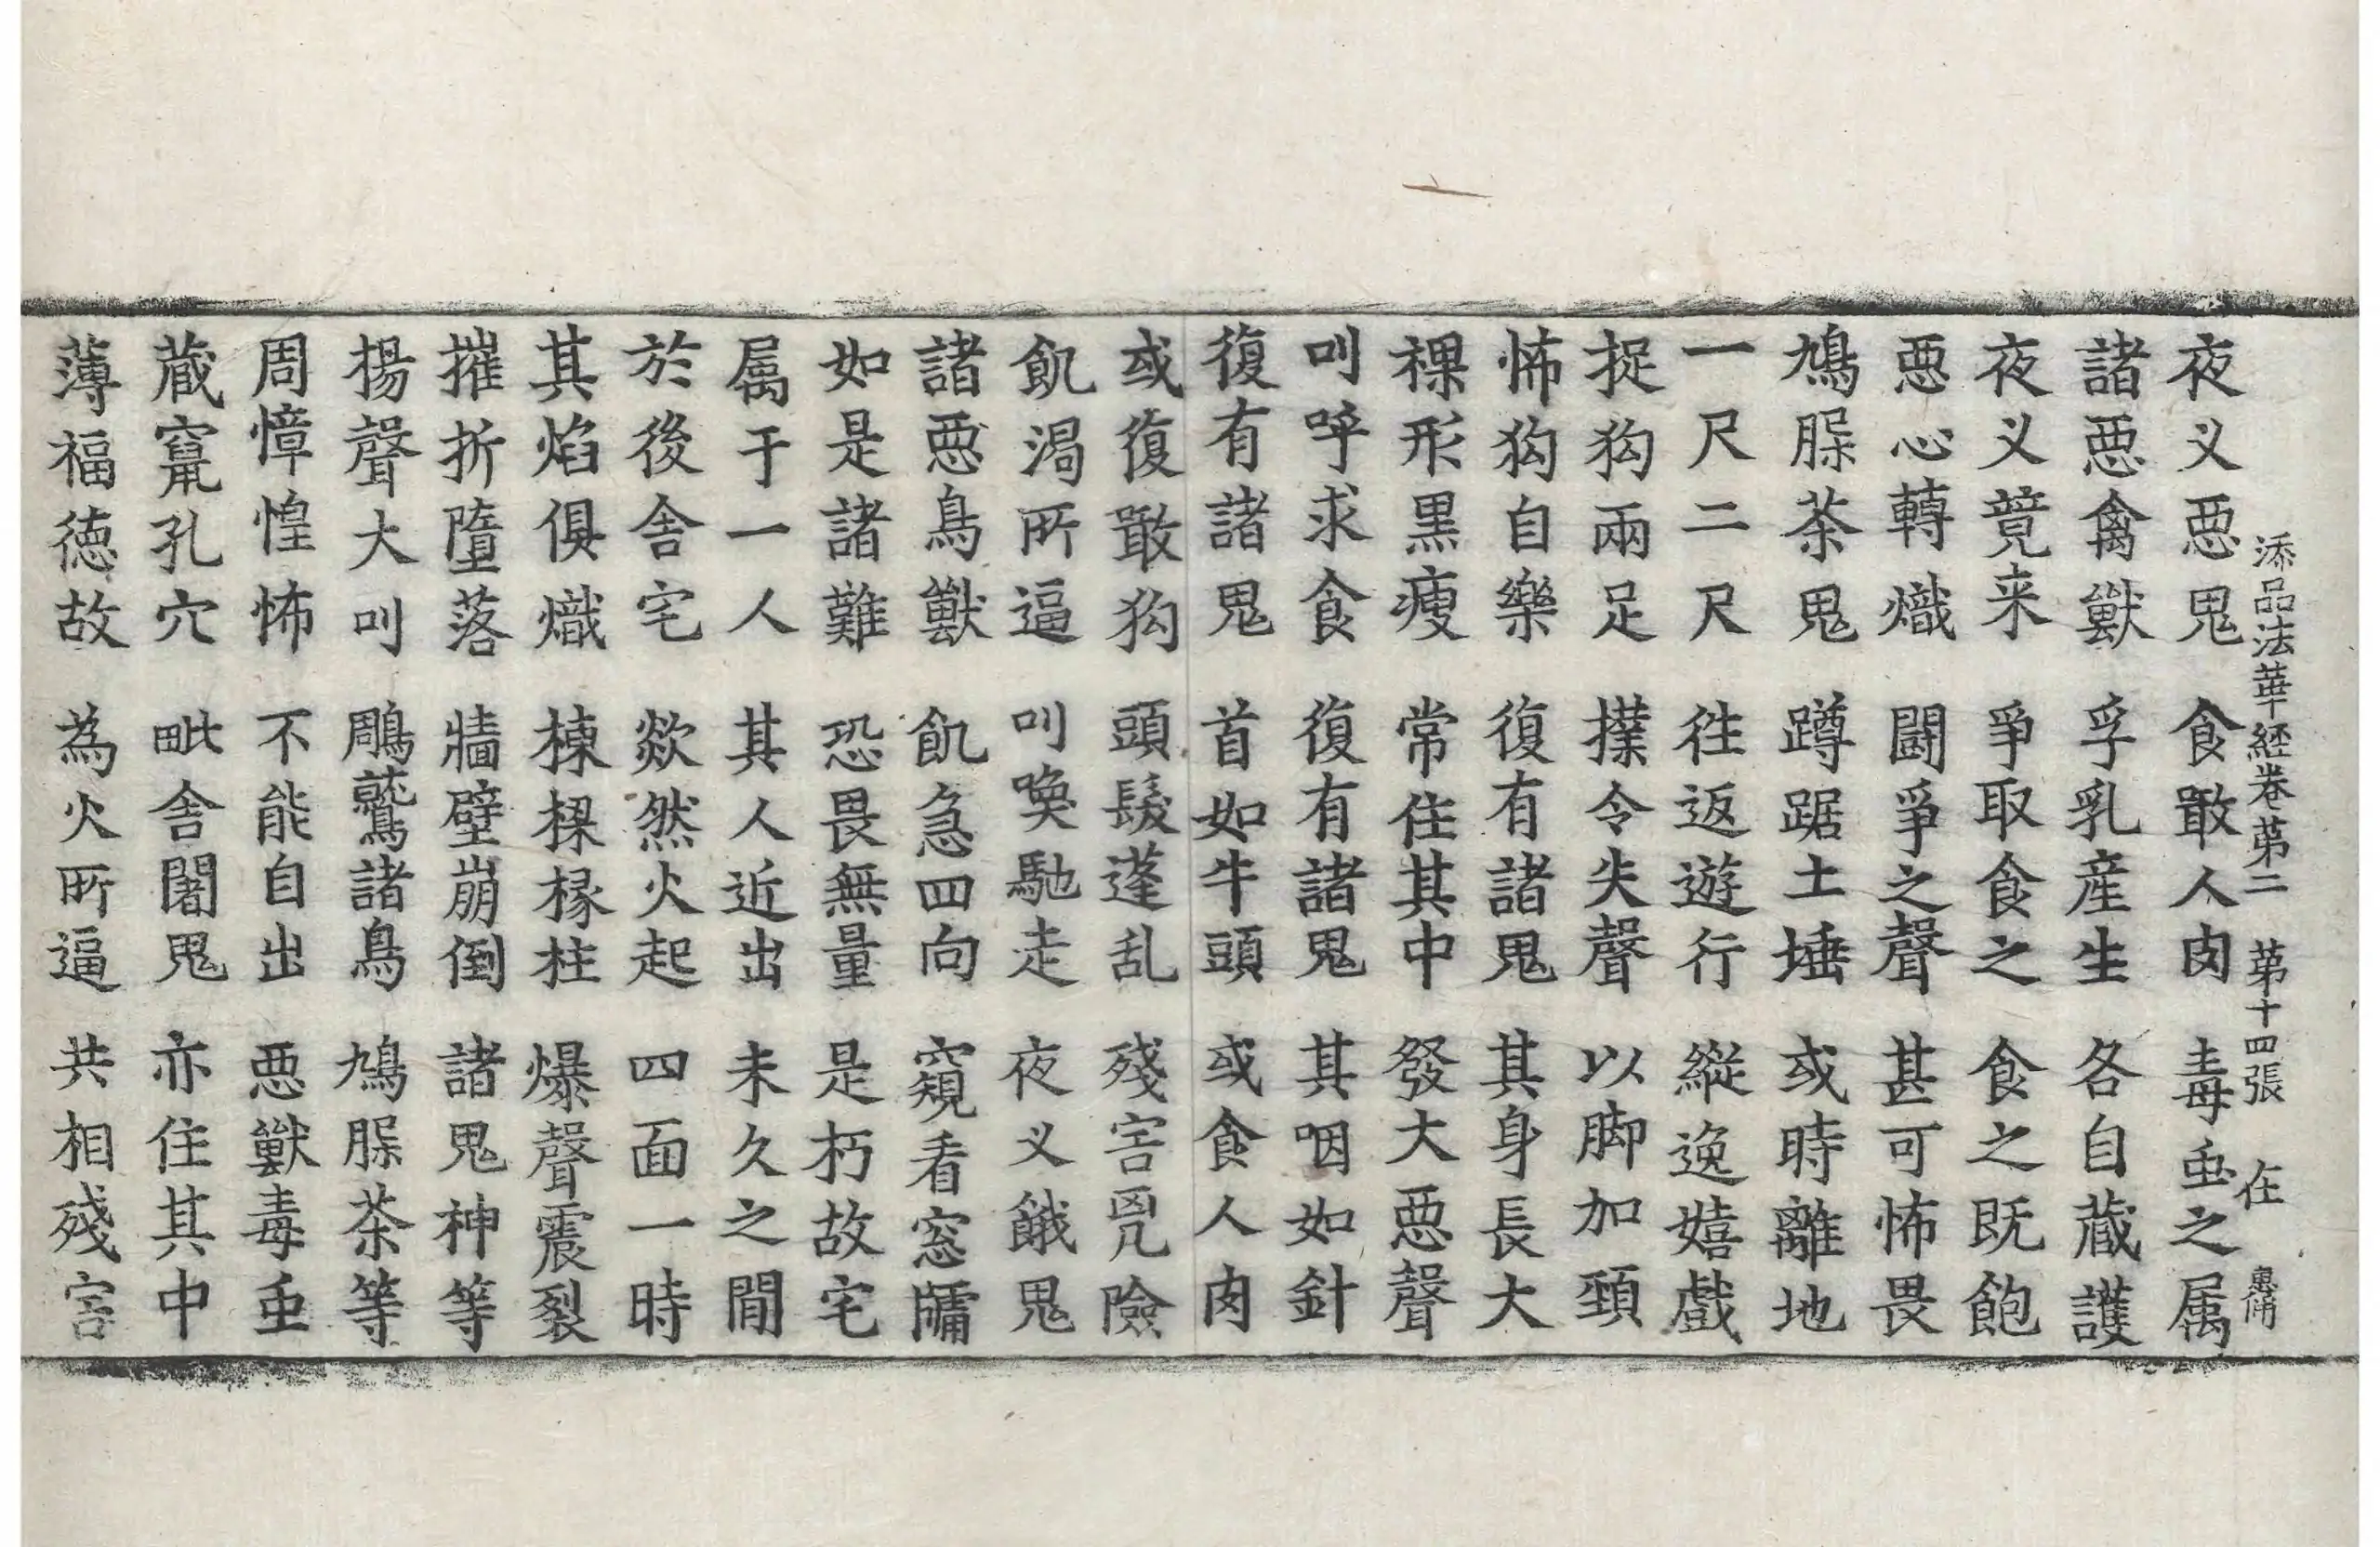 添品法華経卷第二 第十四張 在
夜叉惡鬼 食噉人肉 毒虫之属
諸惡禽獸 孚乳産生 各自蔵護
夜叉竟来 爭取食之 食之既飽
惡心轉熾 鬪爭之聲 甚可怖畏
鳩槃茶鬼 蹲踞土埵 或時離地
一尺二尺 徃返遊行 縱逸嬉戲
捉狗兩足 撲令失聲 以脚加頚
怖狗自樂 復有諸鬼 其身長大
裸形黒瘦 常住其中 發大惡聲
叫呼求食 復有諸鬼 其咽如針
復有諸鬼 首如牛頭 或食人肉
或復噉狗 頭髮蓬乱 殘害兇險
飢渇所逼 叫喚馳走 夜叉餓鬼
諸惡鳥獸 飢急四向 窺看窓牖
如是諸難 恐畏無量 是朽故宅
属于一人 其人近出 未久之間
於後舎宅 欻然火起 四面一時
其焰俱熾 棟樑椽柱 爆聲震裂
摧折墮落 牆壁崩倒 諸鬼神等
揚聲大叫 鵰鷲諸鳥 鳩槃茶等
周慞惶怖 不能自出 惡獸毒虫
蔵竄孔穴 毗舎闍鬼 亦住其中
薄福徳故 為火所逼 共相殘害